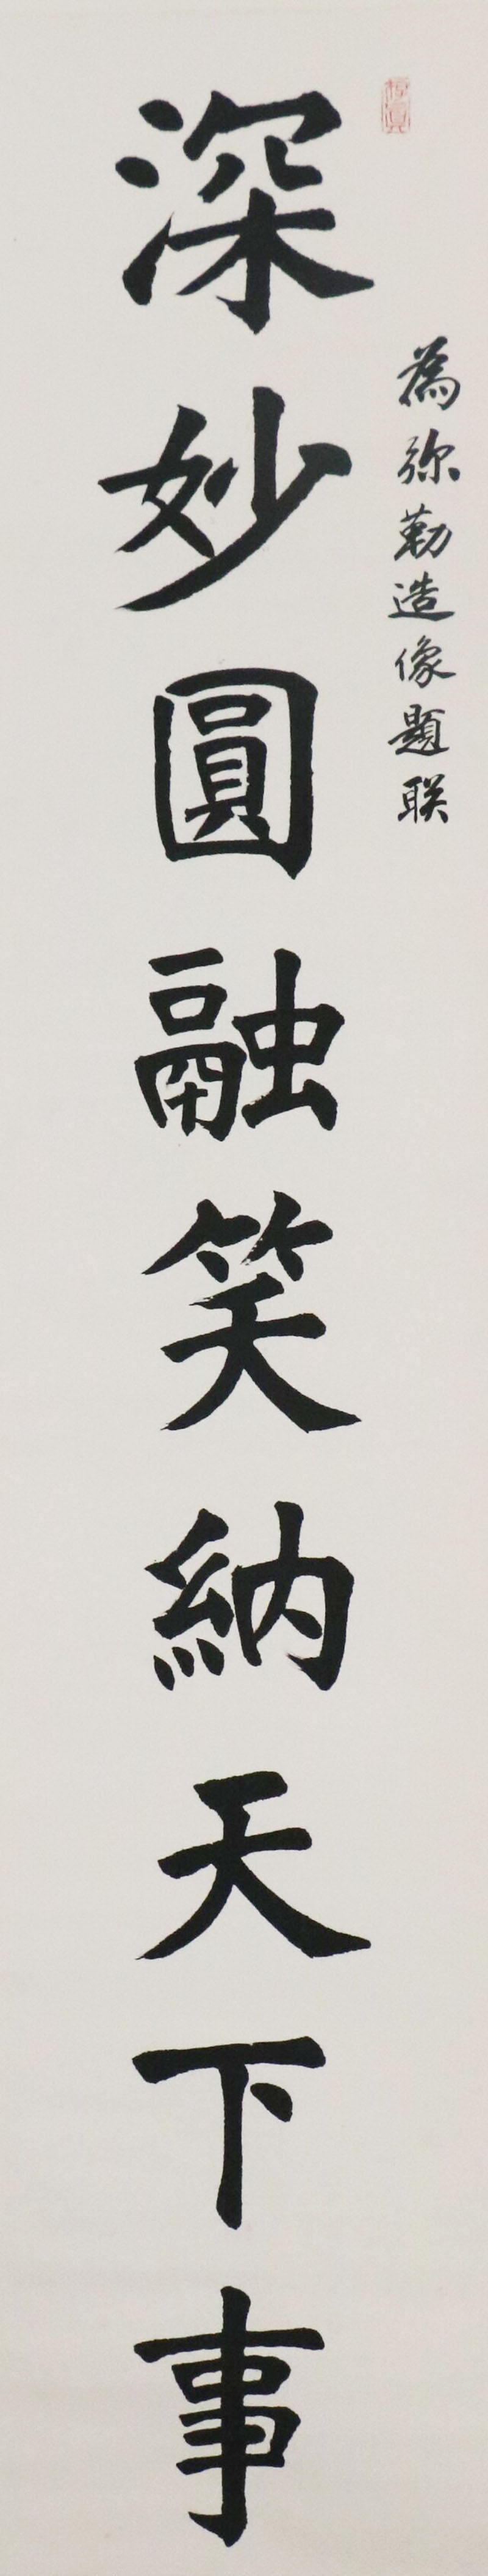 為弥勒造像題联
深妙圓融笑納天下事